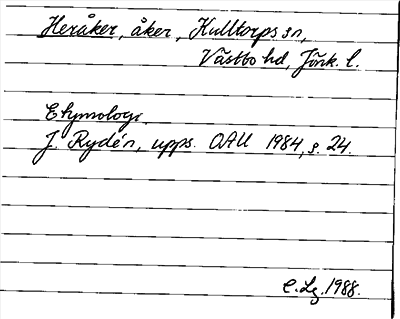 Heråker, åker, Kulltorps sn,
Västbo hd, Jönk. l.
Etymologi.
J. Rydén, upps. OAU 1984, s. 24.
C. Lg. 1988.